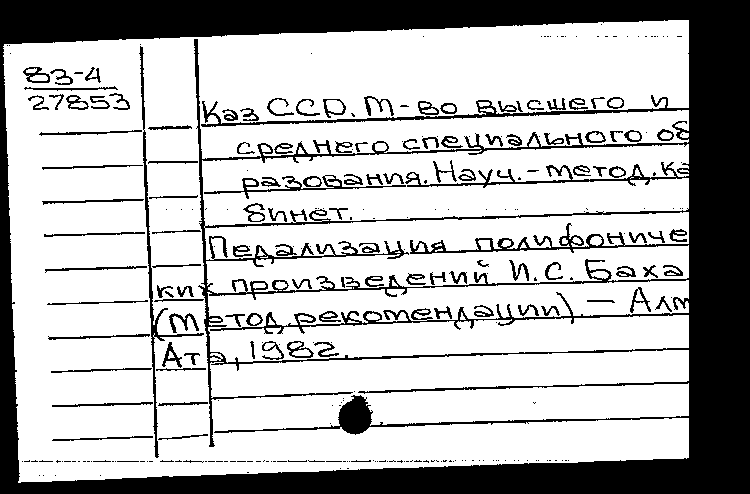 83-4
27853
Каз ССР. М-во высшего и
среднего специального об
разования. Науч.-метод. ка
бинет.
Педализация полифониче
ких произведений И.С. Баха
(метод. рекомендации). — Алм
Ата, 1982.